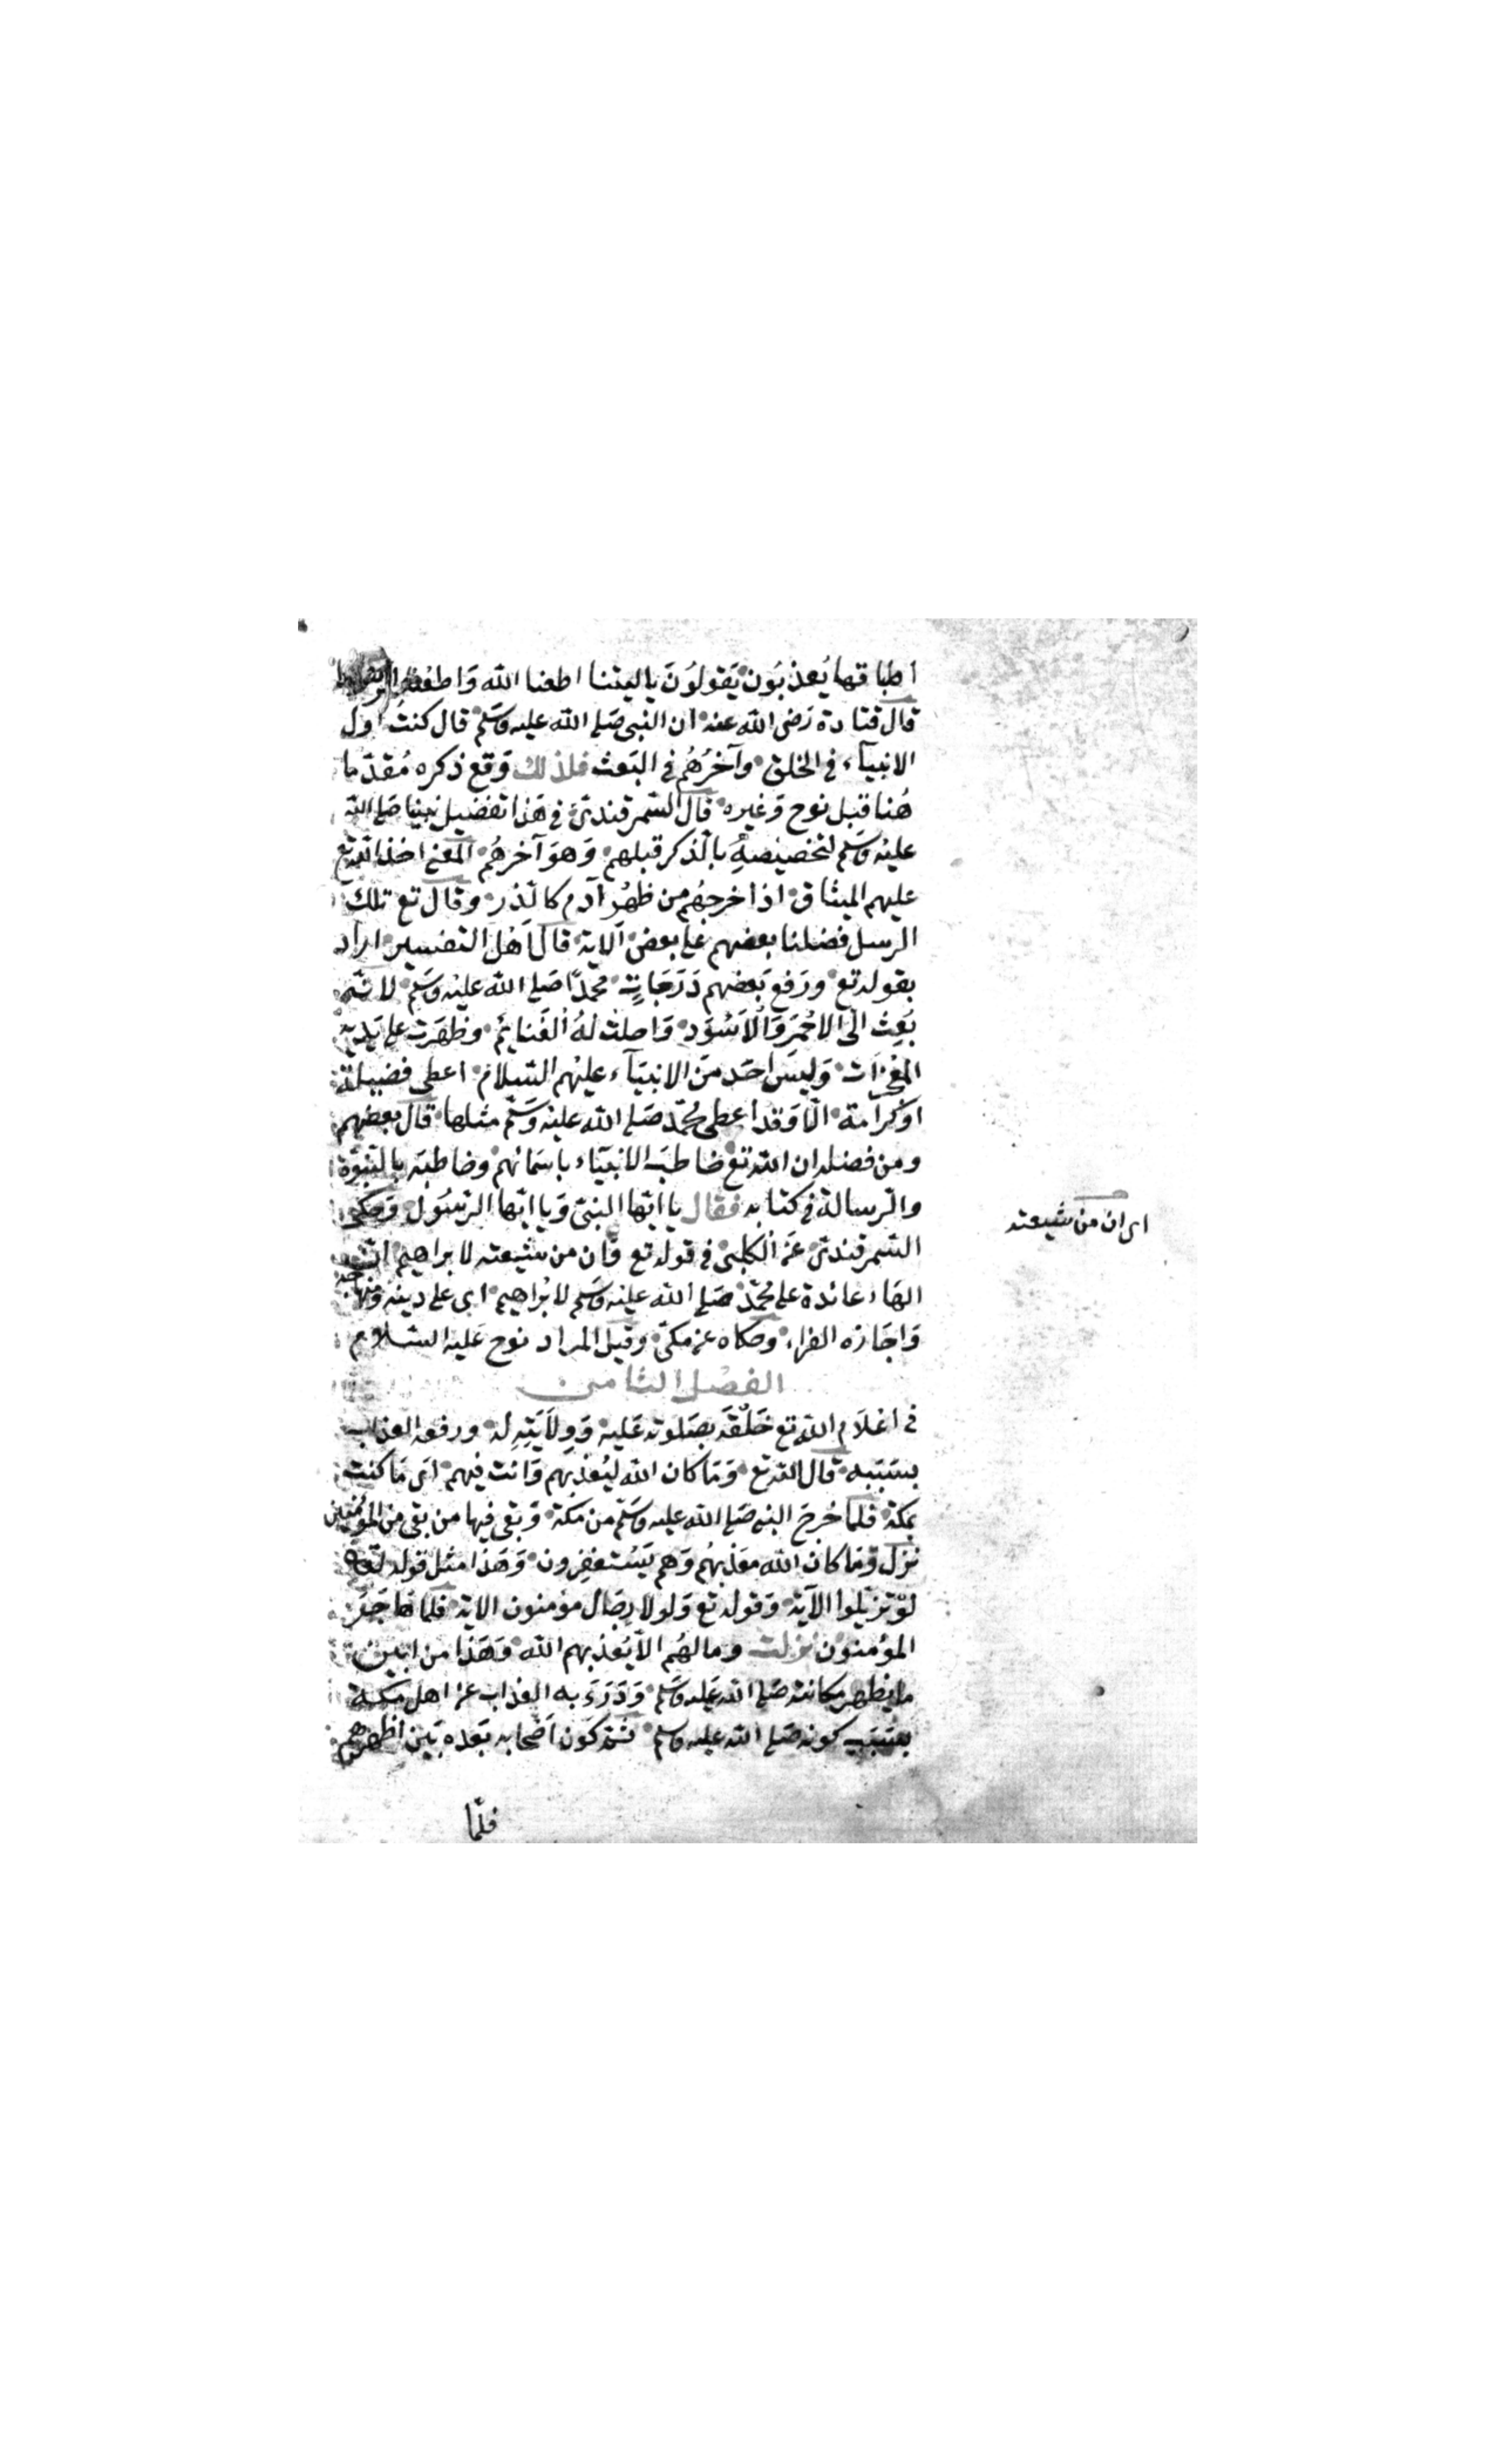 اطباقها يُعذبُون يَقولوُنَ ياليتنا اطعنا الله وَاطعنا
قال قتادة رَضى الله عنه ان النبى صَلى الله عليه وسَلم قال كنتُ اول
الانبيآء فى الخلق وآخرُهُم فى البَعث فلذلك وَقع ذكره مُقدّما
هُنا قبل نوح وَغيره قال السّمرقندىّ فى هَذا تفضيل نبينا صَلى الله
عليْه وَسَلم لتخصيْصِهِ بالذكر قبلهم وَهوَ آخرهُم المَعْنى اخذ الله تع
عليهم الميثاق اذ اخرجهُم من ظهْر آدم كالذر وقال تع تلك
الرسل فضلنا بعضهم على بعض الآية قال اَهْل التفسير اراد
بقوله تع ورَفع بَعضهم دَرَجَاتٍ محمّدًا صَلى الله عليْه وَسَلم لانّه
بُعِثَ الى الاحْمَر وَالْاَسْوَد وَاحلت لهُ الْغَنايم وظهَرَت على يَديْه
المعْجزَات وَليسَ اَحَد منَ الانبيَآء عليْهم السّلام اعطى فضيلة
اوْكرَامَة الّا وَقد اعطى مُحمّد صَلى الله عليْه وَسَلّم مثلها قال بعضهم
ومن فضله ان الله تع خاطبَ الانبيَآء باسَمائهم وخاطبَه بالنبُوّة
والرسالة فى كتابه فقال يا ايّها النبىّ وَيا ايّها الرّسُول وَحكى
السّمرقندىّ عَن الْكلبىّ فى قوله تع وَان من شيعته لابراهيم انّ
ای ان من شيعته
الهَاء عائدة على مُحمّد صَلى الله عليْه وَسَلم لابْراهيم اى على دينه وَمنهاجه
وَاجَازه الفراء وحكاه عنه مكىّ وقيل المراد نوح عَليه السّلام
الفصْل الثامن
فى اعْلَام الله تع خَلْقَه بصَلوته عَليه وَوِلَايَتِهِ له ورفعه العذاب
بسَبَبه قال الله تع وَمَا كان الله ليُعَذبَهم وَانت فيهم اىْ مَا كنت
بمكة فلمّا خرجَ النبى صَلى الله عليه وسَلّم من مَكّة وَبقى فيها من بقى من المؤمنين
نزل وَمَا كان الله معَذبهُم وَهم يَسْتغفِرون وَهَذا مثل قوله تعالى
لوْ تزيّلوا الآيَة وَقوله تع وَلولا رجَال مؤمنون الاية فلما هاجَرَ
المؤمنوُن نزلت ومالهُم الّا يُعَذبهم الله وَهَذا من ابين
ما يُظهر مكانته صَلى الله عَليه وسَلم وَدَرَءَ به العذاب عن اهل مَكة
بسَبَبِ كونه صَلى الله عليه وسلم ثمّ كون اَصْحابه بَعْده بَين اظهرهم
فلمّا